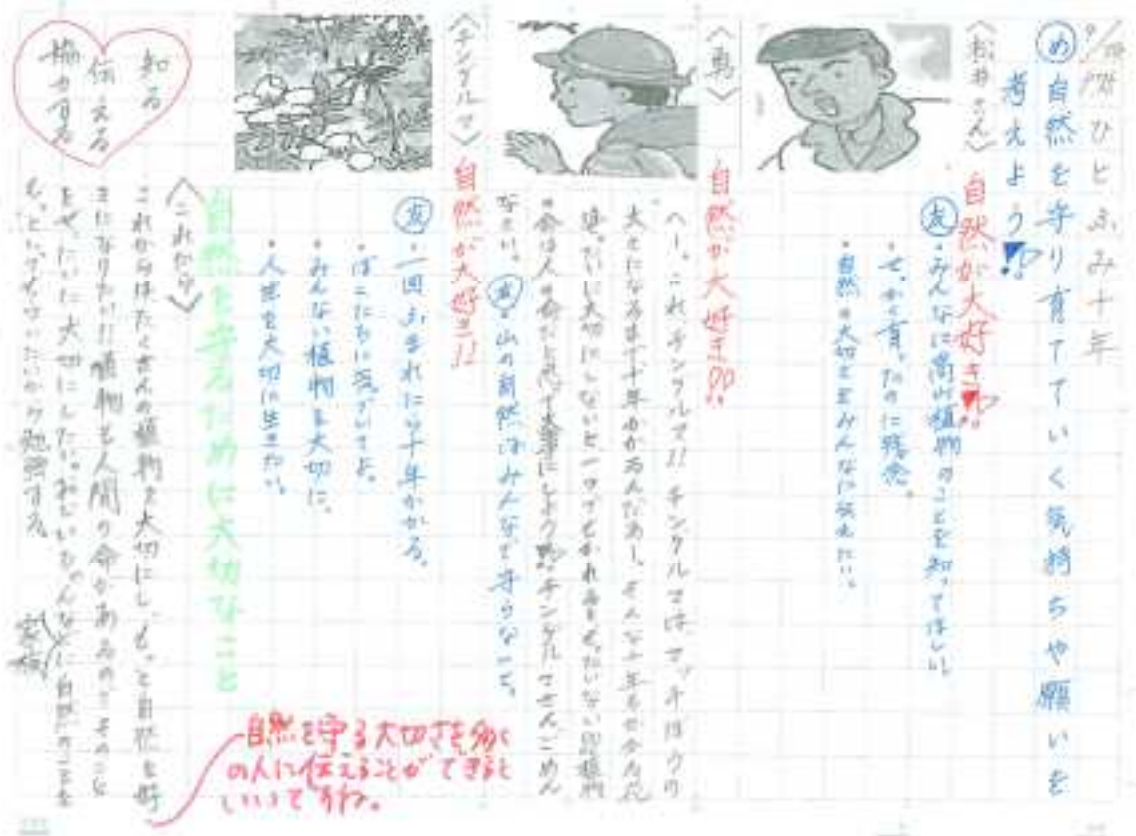 ひとふみ十年
め 自然を守り育てていく気持ちや願いを
考えよう
〈松井さん〉
自然が大好き
友 ・みんなに高山植物のことを知ってほしい。
・せっかく育ったのに残念。
・自然の大切さをみんなに伝えたい。
〈勇〉
自然が大好き!!
へー、これチングルマ!! チングルマは、マッチぼうの
太さになるまで十年かかるんだあー。そんなに
大切にしないと
植物
の命は人の命だと思って大事にしよう チングルマさんごめん
なさい。
友 ・山の自然はみんなで守らないと。
〈チングルマ〉
自然が大好き!!
友 ・一回ふまれたら十年かかる。
・ぼくたちに気づいてよ。
・みんない植物も大切に。
・人生を大切に生きたい。
自然を守るために大切なこと
〈これから〉
これからはたくさんの植物を大切にし、もっと自然を好
きになりたい!! 植物も人間の命があるのでそのこと
をぜったいに大切にしたい。
勉強する。
家族
自然を守る大切さを多く
の人に伝えることができると
いいですね。
知る
伝える
協力する